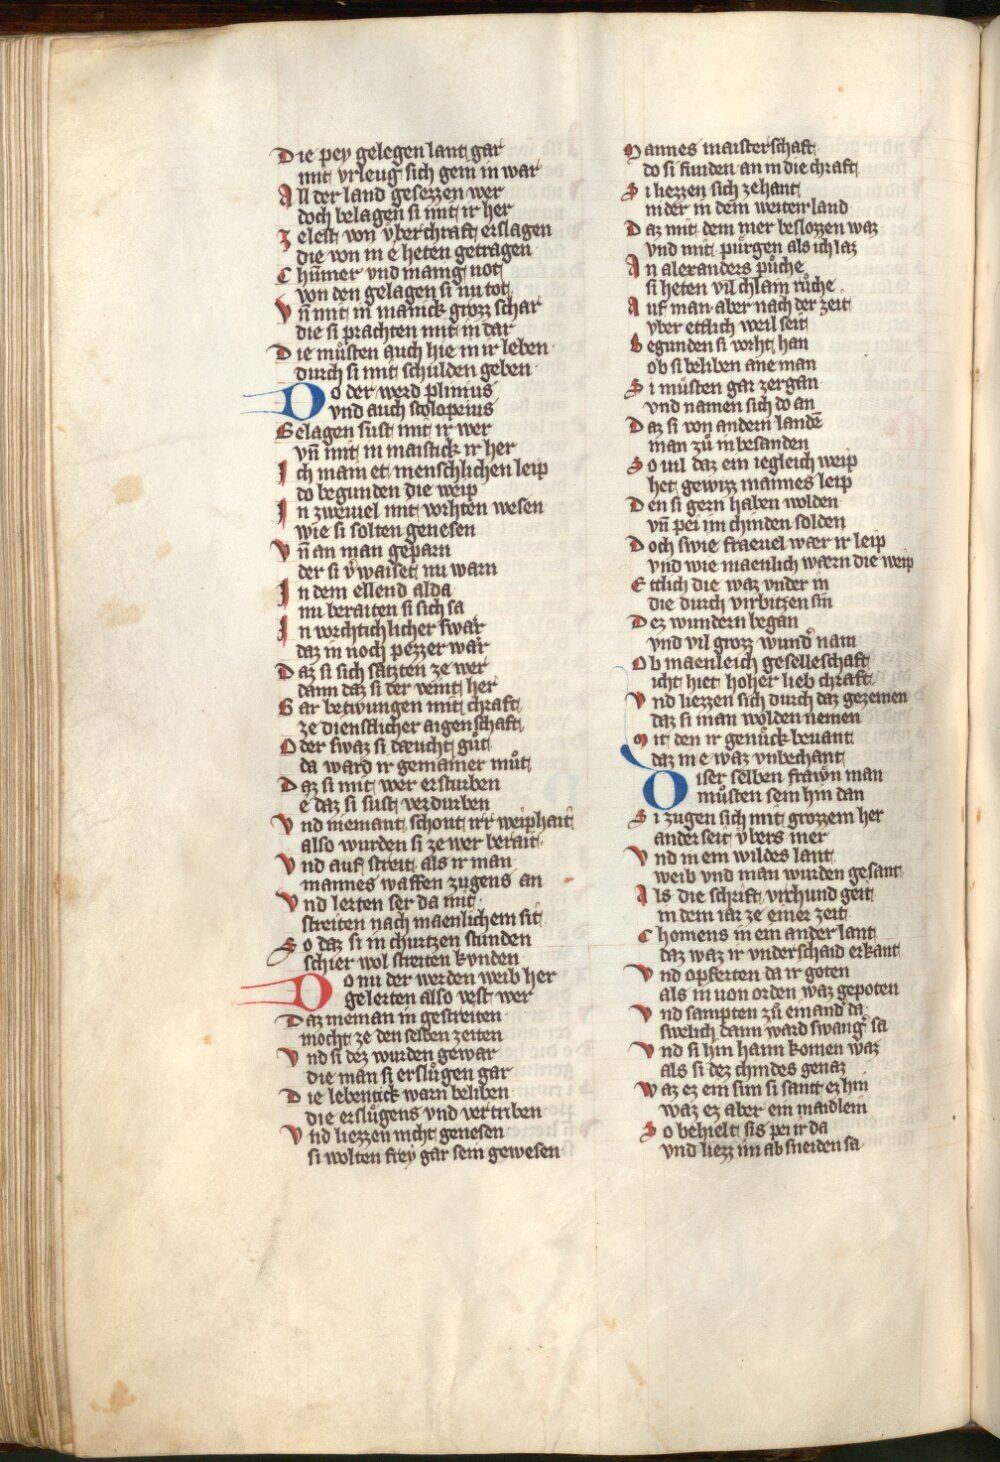 Die pey gelegen lant gar
mit vrleug sich gem in war
All der land gesezzen wer
doch belagen si mit ir her
Zelest von vberchraft erslagen
die von in e heten getragen
Chum̄er vnd manig not
von den gelagen si nu tot
Vn̄ mit in manick grozz schar
die si prachten mit in dar
Die můsten auch hie in ir leben
durch si mit schulden geben
Do der werd plinius
vnd auch scolopeius
Gelagen sust mit ir wer
vn̄ mit in maistick ir her
Ich main et menschlichen leip
do begunden die weip
In zweiuel mit vorhten wesen
wie si solten genesen
Vn̄ an man geparn
der si v̓waiset nu warn
In dem ellend alda
nu beraiten si sich sa
In vorchtichlicher swar
daz in noch pezzer war
Daz si sich satzten ze wer
dann daz si der veint her
Gar betwungen mit chraft
ze dienstlicher aigenschaft
Oder swaz si dæucht gůt
da ward ir gemainer můt
Daz si mit wer ersturben
e daz si sust verdurben
Vnd niemant schont irr weiphait
also wurden si ze wer berait
Vnd auf streit als ir man
mannes waffen zugens an
Vnd lerten ser da mit
streiten nach maenlichem sit
So daz si in churtzen stunden
schier wol streiten kunden
Do nu der werden weib her
gelerten also vest wer
Daz nieman in gestreiten
mocht ze den selben zeiten
Vnd si dez wurden gewar
die man si erslůgen gar
Die lebentick warn beliben
die erslůgens vnd vertriben
Vnd liezzen nicht genesen
si wolten frey gar sein gewesen
Mannes maisterschaft
do si funden an in die chraft
Si liezzen sich zehant
nider in dem weiten land
Daz mit dem mer beslozzen waz
vnd mit pürgen als ich laz
An alexanders půche
si heten vil chlain růche
Auf man aber nach der zeit
vber etlich weil seit
Begunden si vorht han
ob si beliben ane man
Si můsten gar zergan
vnd namen sich do an
Daz si von andern landē
man zů in besanden
So uil daz ein iegleich weip
het gewizz mannes leip
Den si gern haben wolden
vn̄ pei im chinden solden
Doch swie fraeuel wær ir leip
vnd wie maenlich wærn die weip
Ettlich die waz vnder in
die durch virbitzen sin
Dez wundern began
vnd vil grozz wund̓ nam
Ob maenleich geselleschaft
icht hiet hoher lieb chraft
Vnd liezzen sich durch daz gezemen
daz si man wolden nemen
Mit den ir genůck bevant
daz in e waz vnbechant
Diser selben frawn man
můsten sein hin dan
Si zugen sich mit grozzem her
anderseit v̓bers mer
Vnd in ein wildes lant
weib vnd man wurden gesant
Als die schrift vrchund geit
in dem iar ze einer zeit
Chomens in ein ander lant
daz waz ir vnderschaid erkant
Vnd opferten da ir goten
als in uon orden waz gepoten
Vnd sampten zů einand̓ da
swelich dann ward swang̓ sa
Vnd si hin hann komen waz
als si dez chindes genaz
Waz ez ein sun si sant ez hin
waz ez aber ein maidlein
So behielt sis pei ir da
vnd liezz im ab sneiden sa